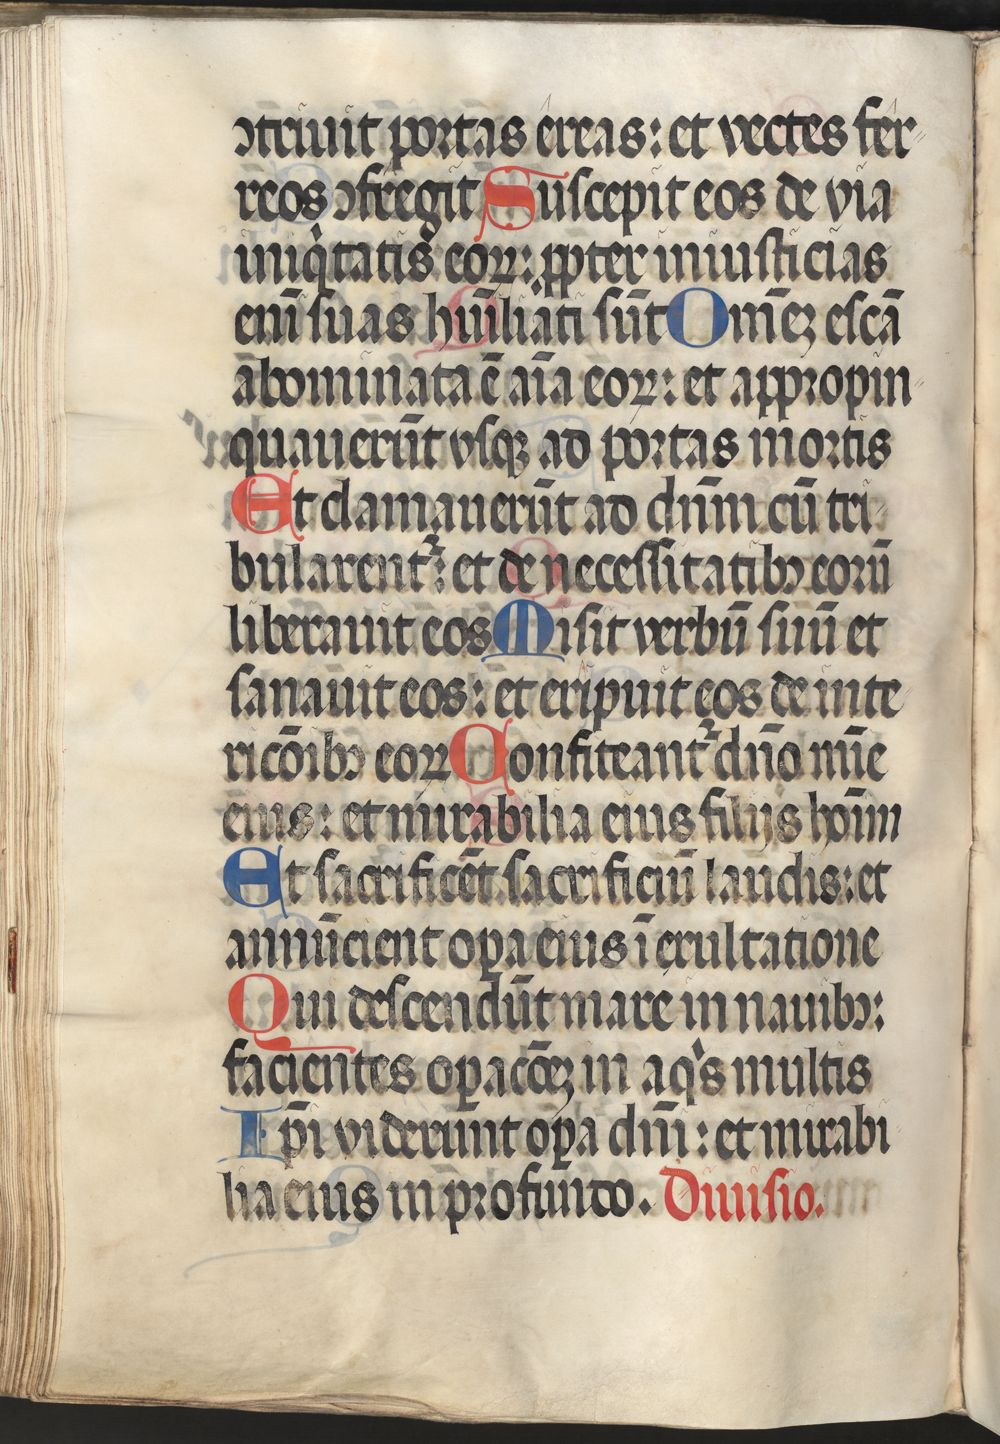 ɔtriuit portas ereas: et vectes fer
reos ɔfregit Suscepit eos de via
iniqͥtatis eoꝝ: ꝓpter iniusticias
enī suas hūiliati sūt Omēꝫ escā
abominata ē aīa eoꝝ: et appropin
quauerūt vsqꝫ ad portas mortis
Et clamauerūt ad dn̄m cū tri
bularent᷑: et de necessitatibꝫ eorū
liberauit eos Misit verbū suū et
sanauit eos: et eripuit eos de inte
ricōibꝫ eoꝝ Confiteant᷑ dn̄o mīe
eius: et mirabilia eius filijs hoīm
Et sacrificēt sacrificiū laudis: et
annūcient oꝑa eius ī exultatione
Qui descendūt mare in nauibꝫ:
facientes oꝑacōeꝫ in aqͥs multis
Ipī viderunt oꝑa dn̄i: et mirabi
lia eius in profundo. Diuisio.